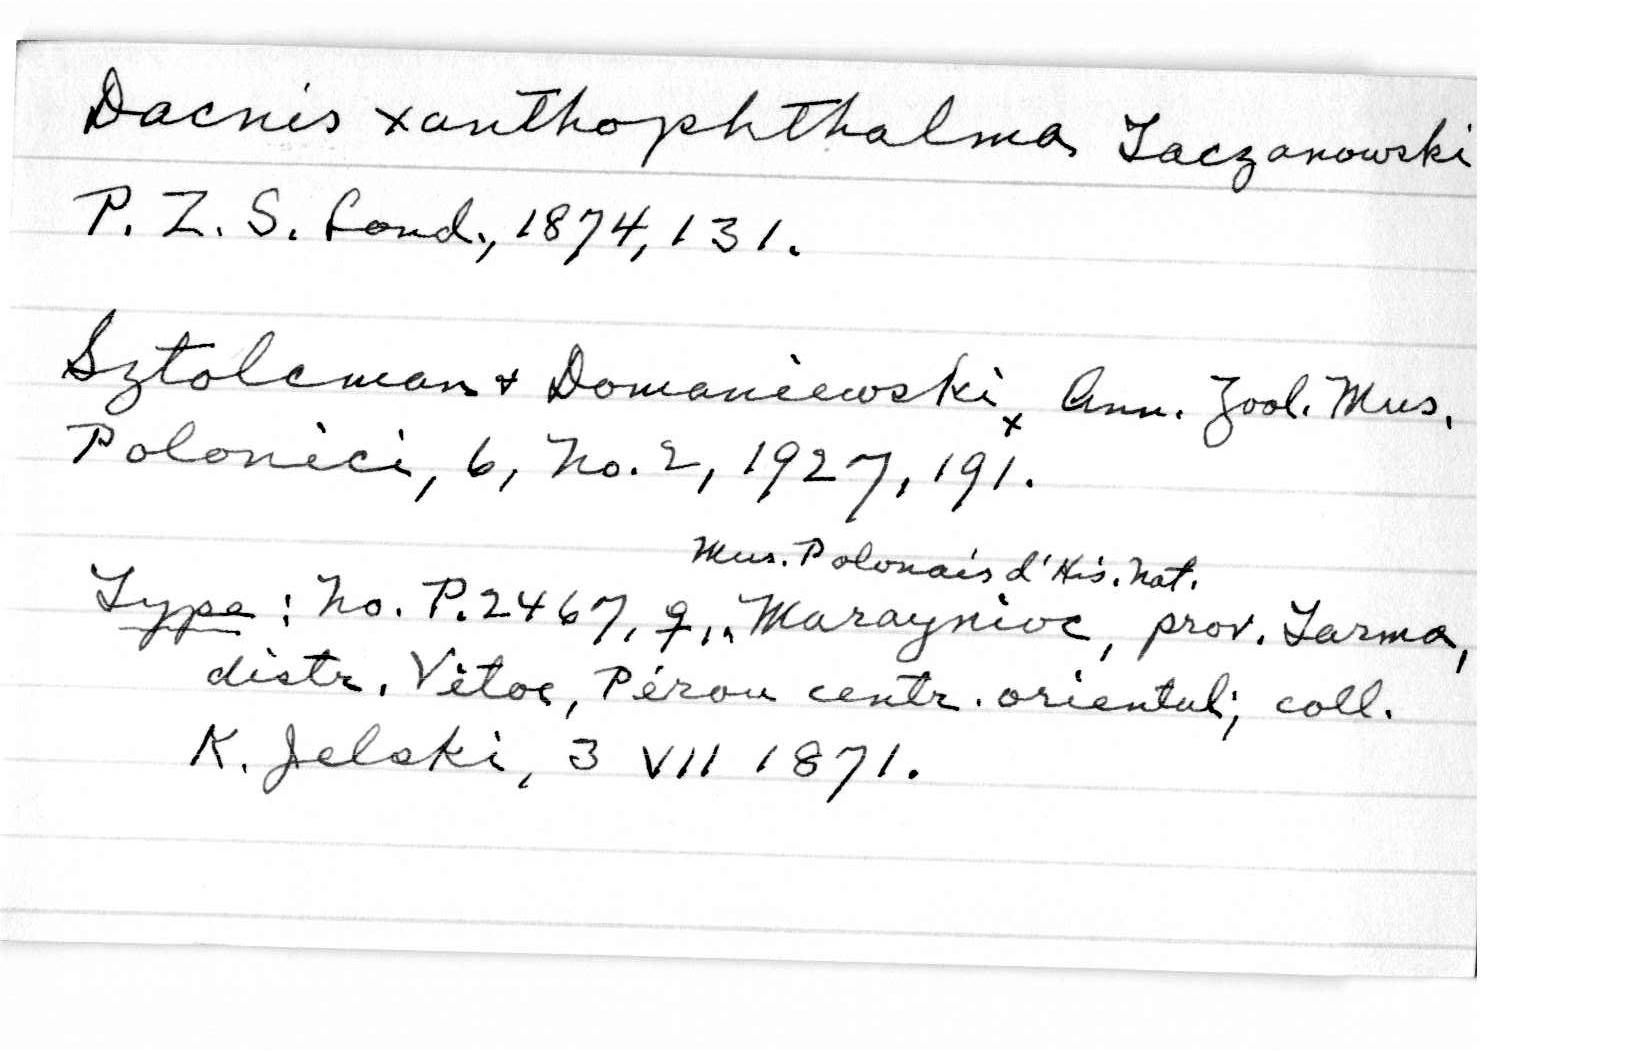 Dacnis xanthophthalma Taczanowski
P. Z. S. Lond., 1874, 131.
Sztolcman & Domaniewski, Ann. Zool. Mus.
Polonici, 6, No. 2, 1927, 191.
Mus. Polonais d'His. Nat.
Type: No. P.2467, ♀, Maraynioc, prov. Tarma,
distr. Vitoc, Pérou centr. oriental; coll.
K. Jelski, 3 VII 1871.